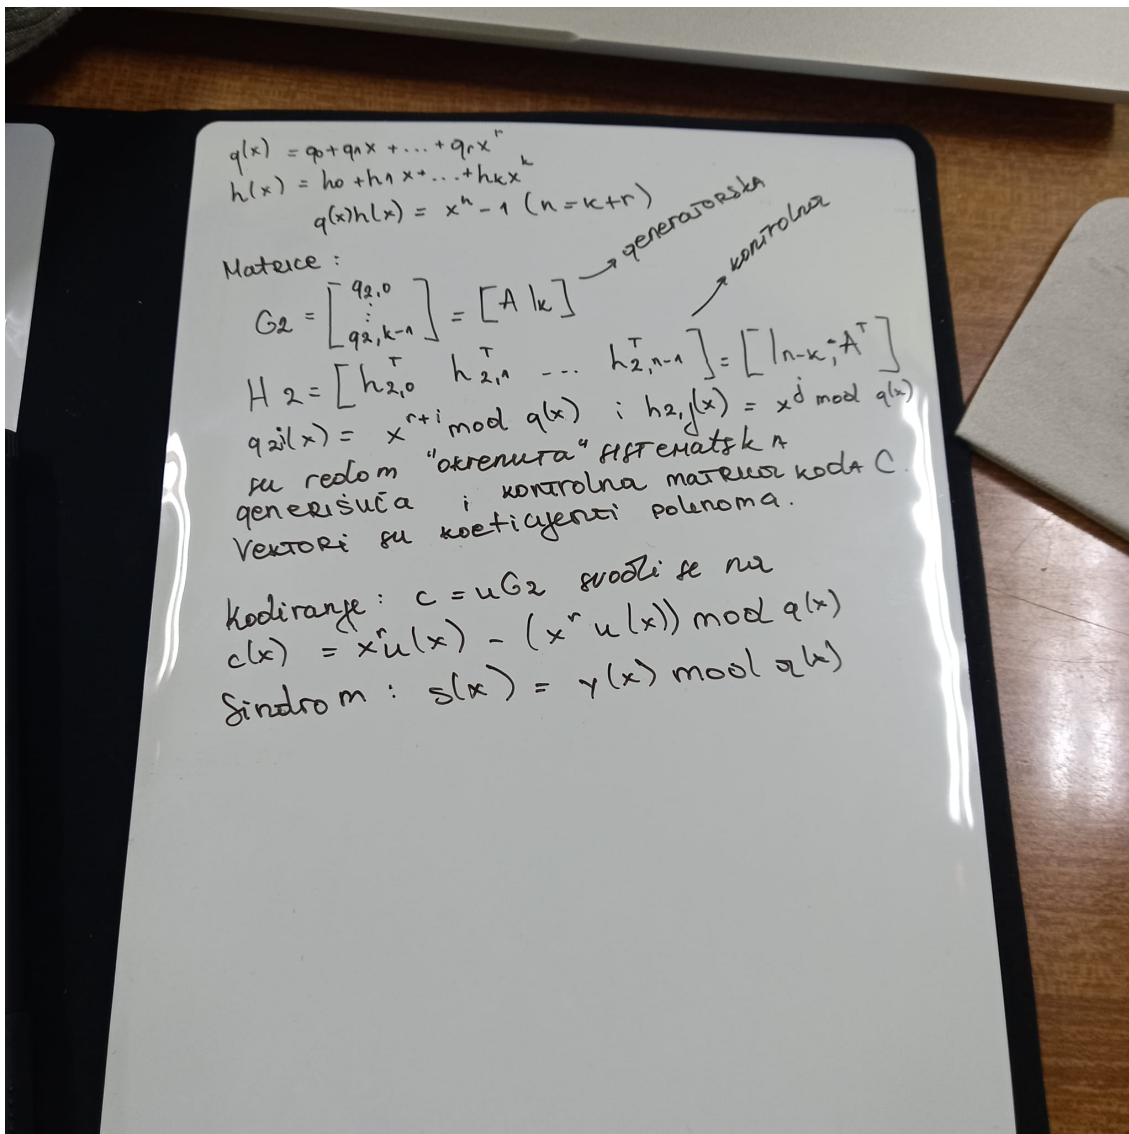 g(x) = g0 + g1x + ... + grx^r
h(x) = h0 + h1x + ... + hkx^k
g(x)h(x) = x^n - 1 (n = k + r)
Matrice :
G2 = [g2,0 ⋮ g2,k-1] = [A Ik] → generatorska
H2 = [h^T2,0 h^T2,1 ... h^T2,n-1] = [In-k; -A^T] → kontrolna
g2i(x) = x^r+i mod g(x) i h2,j(x) = x^j mod g(x)
su redom "okrenuta" sistematska
generišuća i kontrolna matrica koda C.
Vektori su koeficijenti polinoma.
Kodiranje : c = uG2 svodi se na
c(x) = x^r u(x) - (x^r u(x)) mod g(x)
Sindrom : s(x) = y(x) mod g(x)